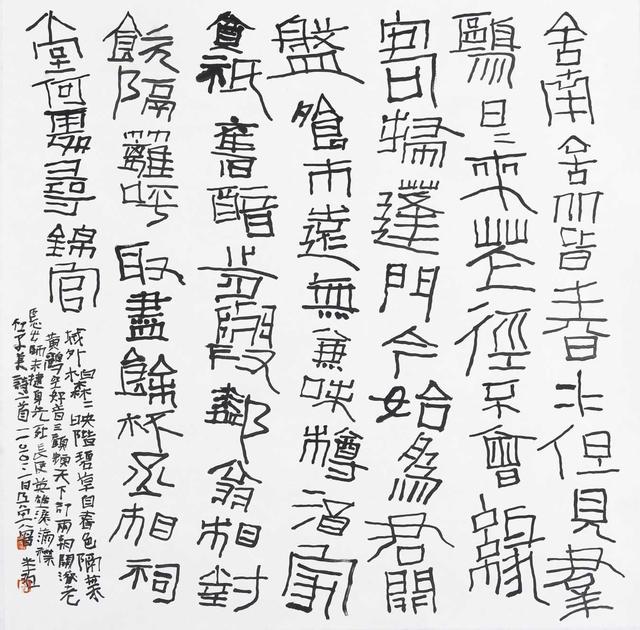 舍南舍北皆春水但見羣
鷗日〻來花徑不曾緣
客掃蓬門今始為君開
盤飧市遠無兼味樽酒家
貧祇舊醅肯與鄰翁相對
飲隔籬呼取盡餘杯丞相祠
堂何處尋錦官
城外柏森〻映階碧草自春色隔葉
黃鸝空好音三顧頻天下計兩朝開濟老
臣心出師未捷身先死長使英雄淚滿襟
杜子美詩二首